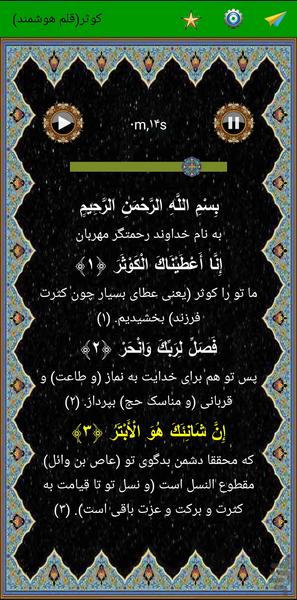 کوثر(قلم هوشمند)
۰m,۱۴s
بِسْمِ اللَّهِ الرَّحْمَنِ الرَّحِيمِ
به نام خداوند رحمتگر مهربان
إِنَّا أَعْطَيْنَاكَ الْكَوْثَرَ ﴿۱﴾
ما تو را کوثر (یعنی عطای بسیار چون کثرت
فرزند) بخشیدیم. (۱)
فَصَلِّ لِرَبِّكَ وَانْحَرْ ﴿۲﴾
پس تو هم برای خدایت به نماز (و طاعت) و
قربانی (و مناسک حج) بپرداز. (۲)
إِنَّ شَانِئَكَ هُوَ الْأَبْتَرُ ﴿۳﴾
که محققا دشمن بدگوی تو (عاص بن وائل)
مقطوع النسل است (و نسل تو تا قیامت به
کثرت و برکت و عزت باقی است). (۳)